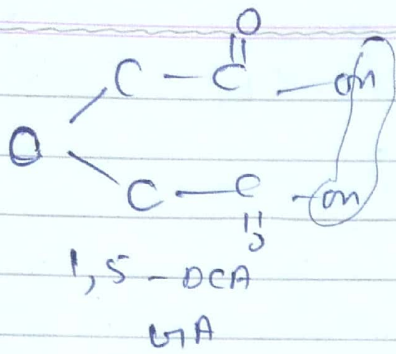 O
C - C - OH
O
C - C - OH
O
1,5 - DCA